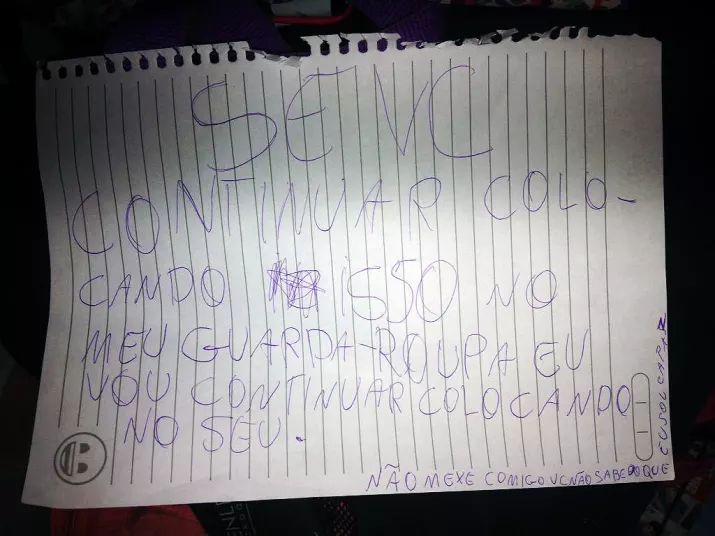 SE VC
CONTINUAR COLO-
CANDO ISSO NO
MEU GUARDA-ROUPA EU
VOU CONTINUAR COLOCANDO
NO SEU.
NÃO MEXE COMIGO VC NÃO SABE DO QUE
EU SOU CAPAZ